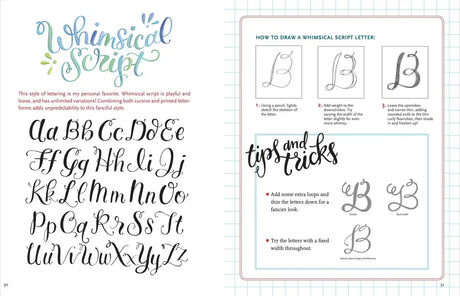 Whimsical
Script
This style of lettering is my personal favorite. Whimsical script is playful and
loose, and has unlimited variations! Combining both cursive and printed letter-
forms adds unpredictability to this fanciful style.
Aa Bb Cc Dd Ee
Ff Gg Hh Ii Jj
Kk Ll Mm Nn Oo
Pp Qq Rr Ss Tt
Uu Vv Ww Xx Yy Zz
30
HOW TO DRAW A WHIMSICAL SCRIPT LETTER:
B
B
B
1. Using a pencil, lightly
sketch the skeleton of
the letter.
2. Add weight to the
downstrokes. Try
varying the width of the
letter slightly for even
more whimsy.
3. Leave the upstrokes
and curves thin, adding
rounded ends to the thin
curly flourishes, then shade
in and freshen up!
tips and
tricks
• Add some extra loops and
thin the letters down for a
fancier look.
B
B
• Try the letters with a fixed
width throughout.
B
31